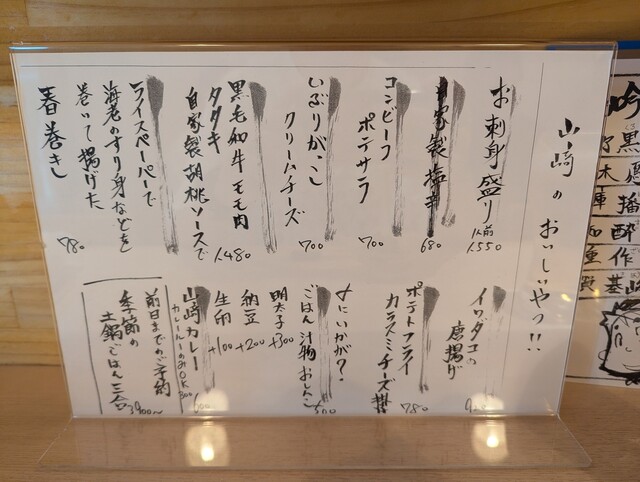 山崎のおいしいやつ!!
お刺身盛り
1人前
1,550
自家製塩辛
680
コンビーフ
ポテサラ
700
いぶりがっこ
クリームチーズ
700
黒毛和牛モモ肉
タタキ
自家製胡桃ソースで
1,480
ライスペーパーで
海老のすり身などを
巻いて揚げた
春巻き
780
イワダコの
唐揚げ
ポテトフライ
カラスミチーズ掛
780
〆にいかが?
ごはん汁物おしんこ
500
明太子 +300
納豆 +200
生卵 +100
山崎カレー
カレールーのみOK
300
600
前日までのご予約
季節の
土鍋ごはん三合
3,900〜